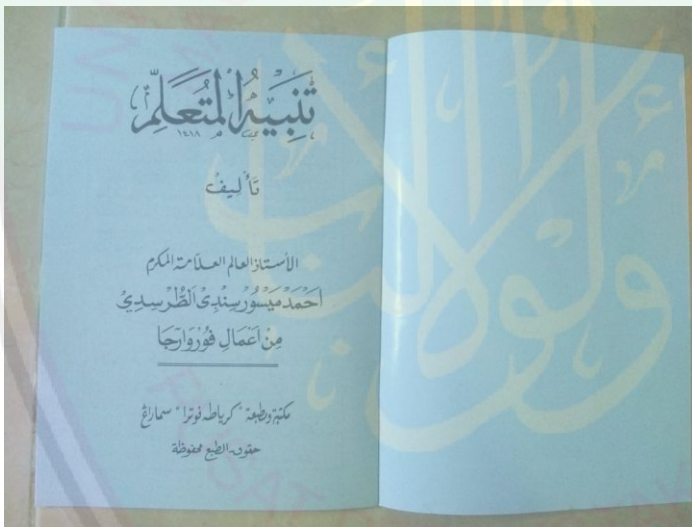 تَنْبِيْهُ الْمُتَعَلِّمِ
١٤١٨
تَأْلِيفُ
الأستاذ العالم العلامة المكرم
اَحْمَدْ مَيْسُوْرْ سِنْدِى اَلطُّرْسِدِيْ
مِنْ اَعْمَالِ فُوْرْوَارَجَا
مكتبة ومطبعة "كرياطه فوترا" سماراغ
حقوق الطبع محفوظة